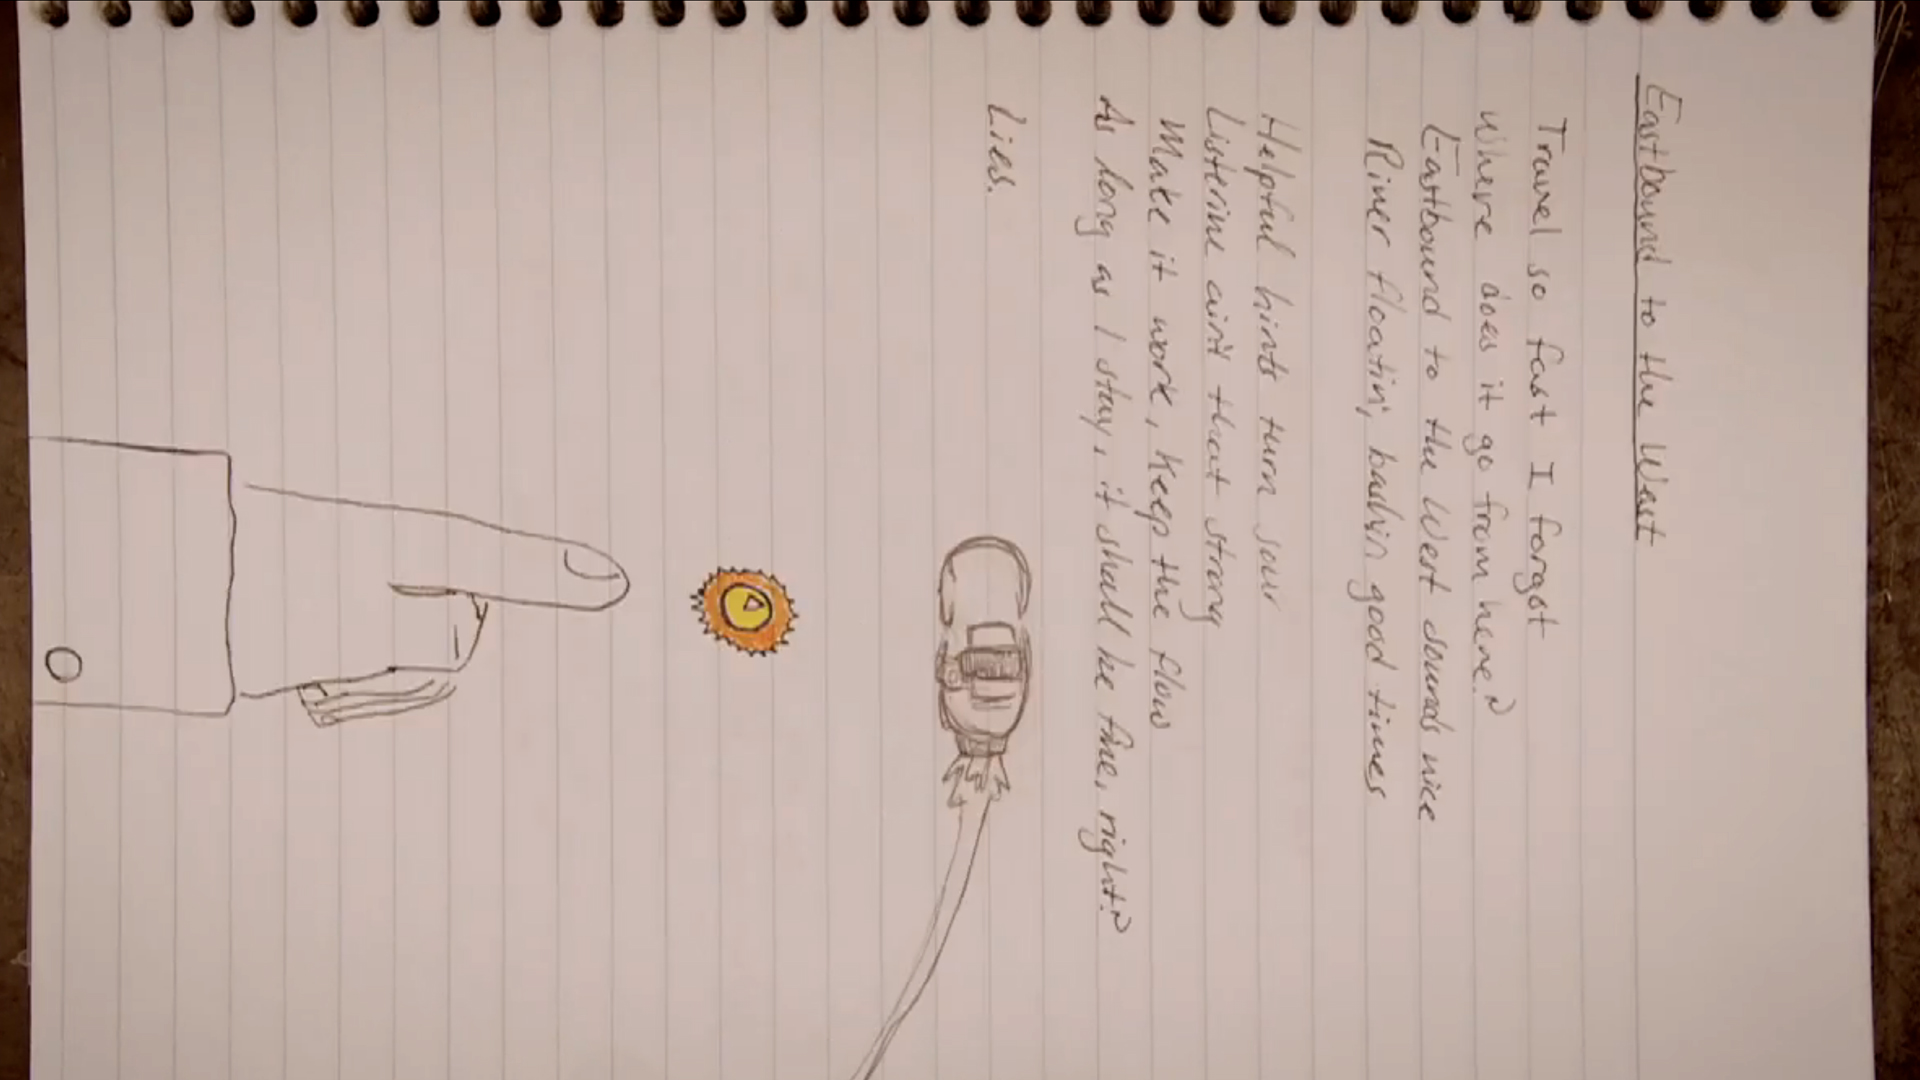 Eastbound to the West
Travel so fast I forgot
Where does it go from here?
Eastbound to the West sounds nice
River floatin', bashin good times
Helpful hints turn sour
Listerine ain't that strong
Make it work, keep the flow
As long as I stay, it shall be fine, right?
Lies.